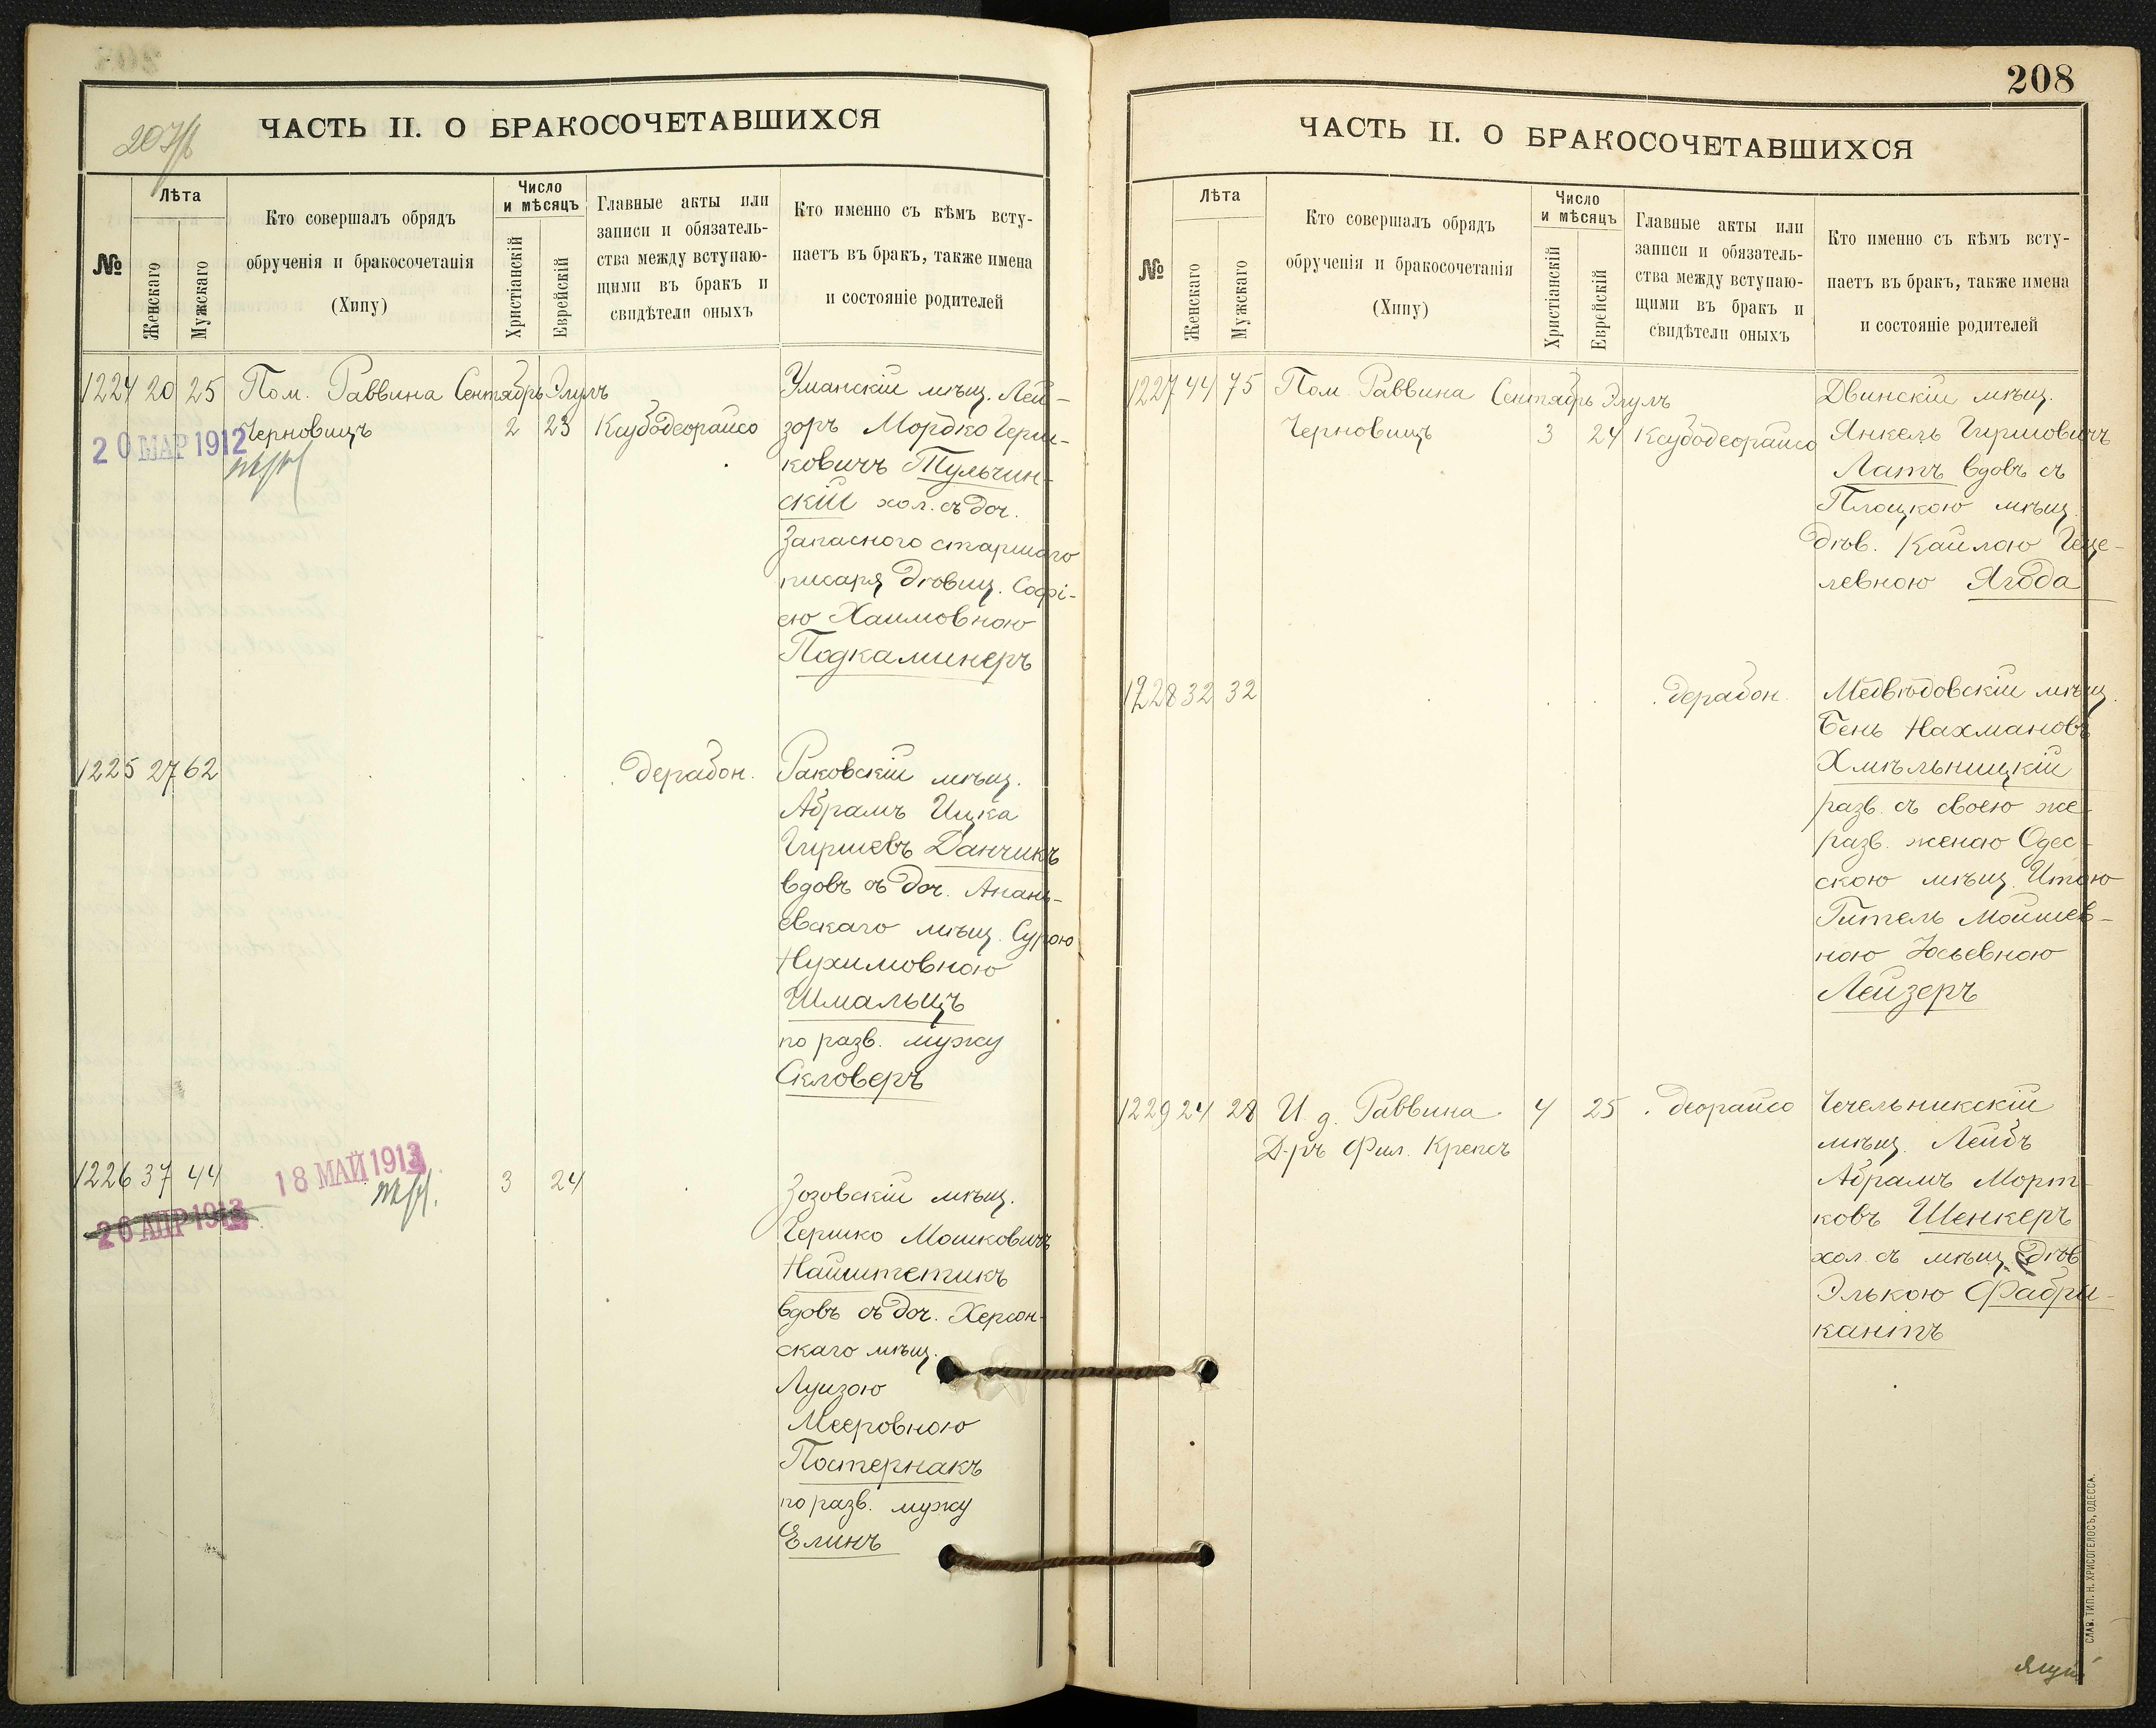 207/б
ЧАСТЬ II. О БРАКОСОЧЕТАВШИХСЯ
№
Лѣта
Женскаго
Мужскаго
Кто совершалъ обрядъ
обрученія и бракосочетанія
(Хипу)
Число
и мѣсяцъ
Христіанскій
Еврейскій
Главные акты или
записи и обязатель-
ства между вступаю-
щими въ бракъ и
свидѣтели оныхъ
Кто именно съ кѣмъ всту-
паетъ въ бракъ, также имена
и состояніе родителей
1224 20 25 Пом. Раввина Сентябрь Элулъ
Черновицъ 2 23 Ксубодеорайсо
20 МАР 1912
Уманскій мѣщ. Лей-
зоръ Мордко Герш-
ковичъ Тульчин-
скій хол. съ доч.
Запасного старшаго
писаря дѣвиц. Софі-
ею Хаимовною
Подкаминеръ
1225 27 62 . . . . дерабон.
Раковскій мѣщ.
Абрамъ Ицка
Гиршевъ Данчикъ
вдовъ съ доч. Анань-
евскаго мѣщ. Сурою
Нухимовною
Шмальцъ
по разв. мужу
Скловеръ
1226 37 44 3 24 .
18 МАЙ 1913
26 АПР 1913
Зозовскій мѣщ.
Гершко Мошковичъ
Найштетикъ
вдовъ съ доч. Херсон-
скаго мѣщ.
Луизою
Мееровною
Постернакъ
по разв. мужу
Елинъ
208
ЧАСТЬ II. О БРАКОСОЧЕТАВШИХСЯ
№
Лѣта
Женскаго
Мужскаго
Кто совершалъ обрядъ
обрученія и бракосочетанія
(Хипу)
Число
и мѣсяцъ
Христіанскій
Еврейскій
Главные акты или
записи и обязатель-
ства между вступаю-
щими въ бракъ и
свидѣтели оныхъ
Кто именно съ кѣмъ всту-
паетъ въ бракъ, также имена
и состояніе родителей
1227 44 75 Пом. Раввина Сентябрь Элулъ
Черновицъ 3 24 Ксубодеорайсо
Двинскій мѣщ.
Янкель Гиршовичъ
Латъ вдовъ съ
Плоцкою мѣщ.
дѣв. Кайлою Геце-
левною Ягода
1228 32 32 . . . . дерабон.
Медвѣдовскій мѣщ.
Бень Нахмановъ
Хмѣльницкій
разв. съ своею же
разв. женою Одес-
скою мѣщ. Итою
Гитель Мошиев-
ною Юсьевною
Лейзеръ
1229 24 28 И. д. Раввина 4 25 . деорайсо
Д-ръ Фил. Крепсъ
Чечельникскій
мѣщ. Лейбъ
Абрамъ Морт-
ковъ Шенкеръ
хол. съ мѣщ. дѣв.
Элькою Фабри-
кантъ
СЛАВ. ТИП. Н. ХРИСОГЕЛОСЪ, ОДЕССА.